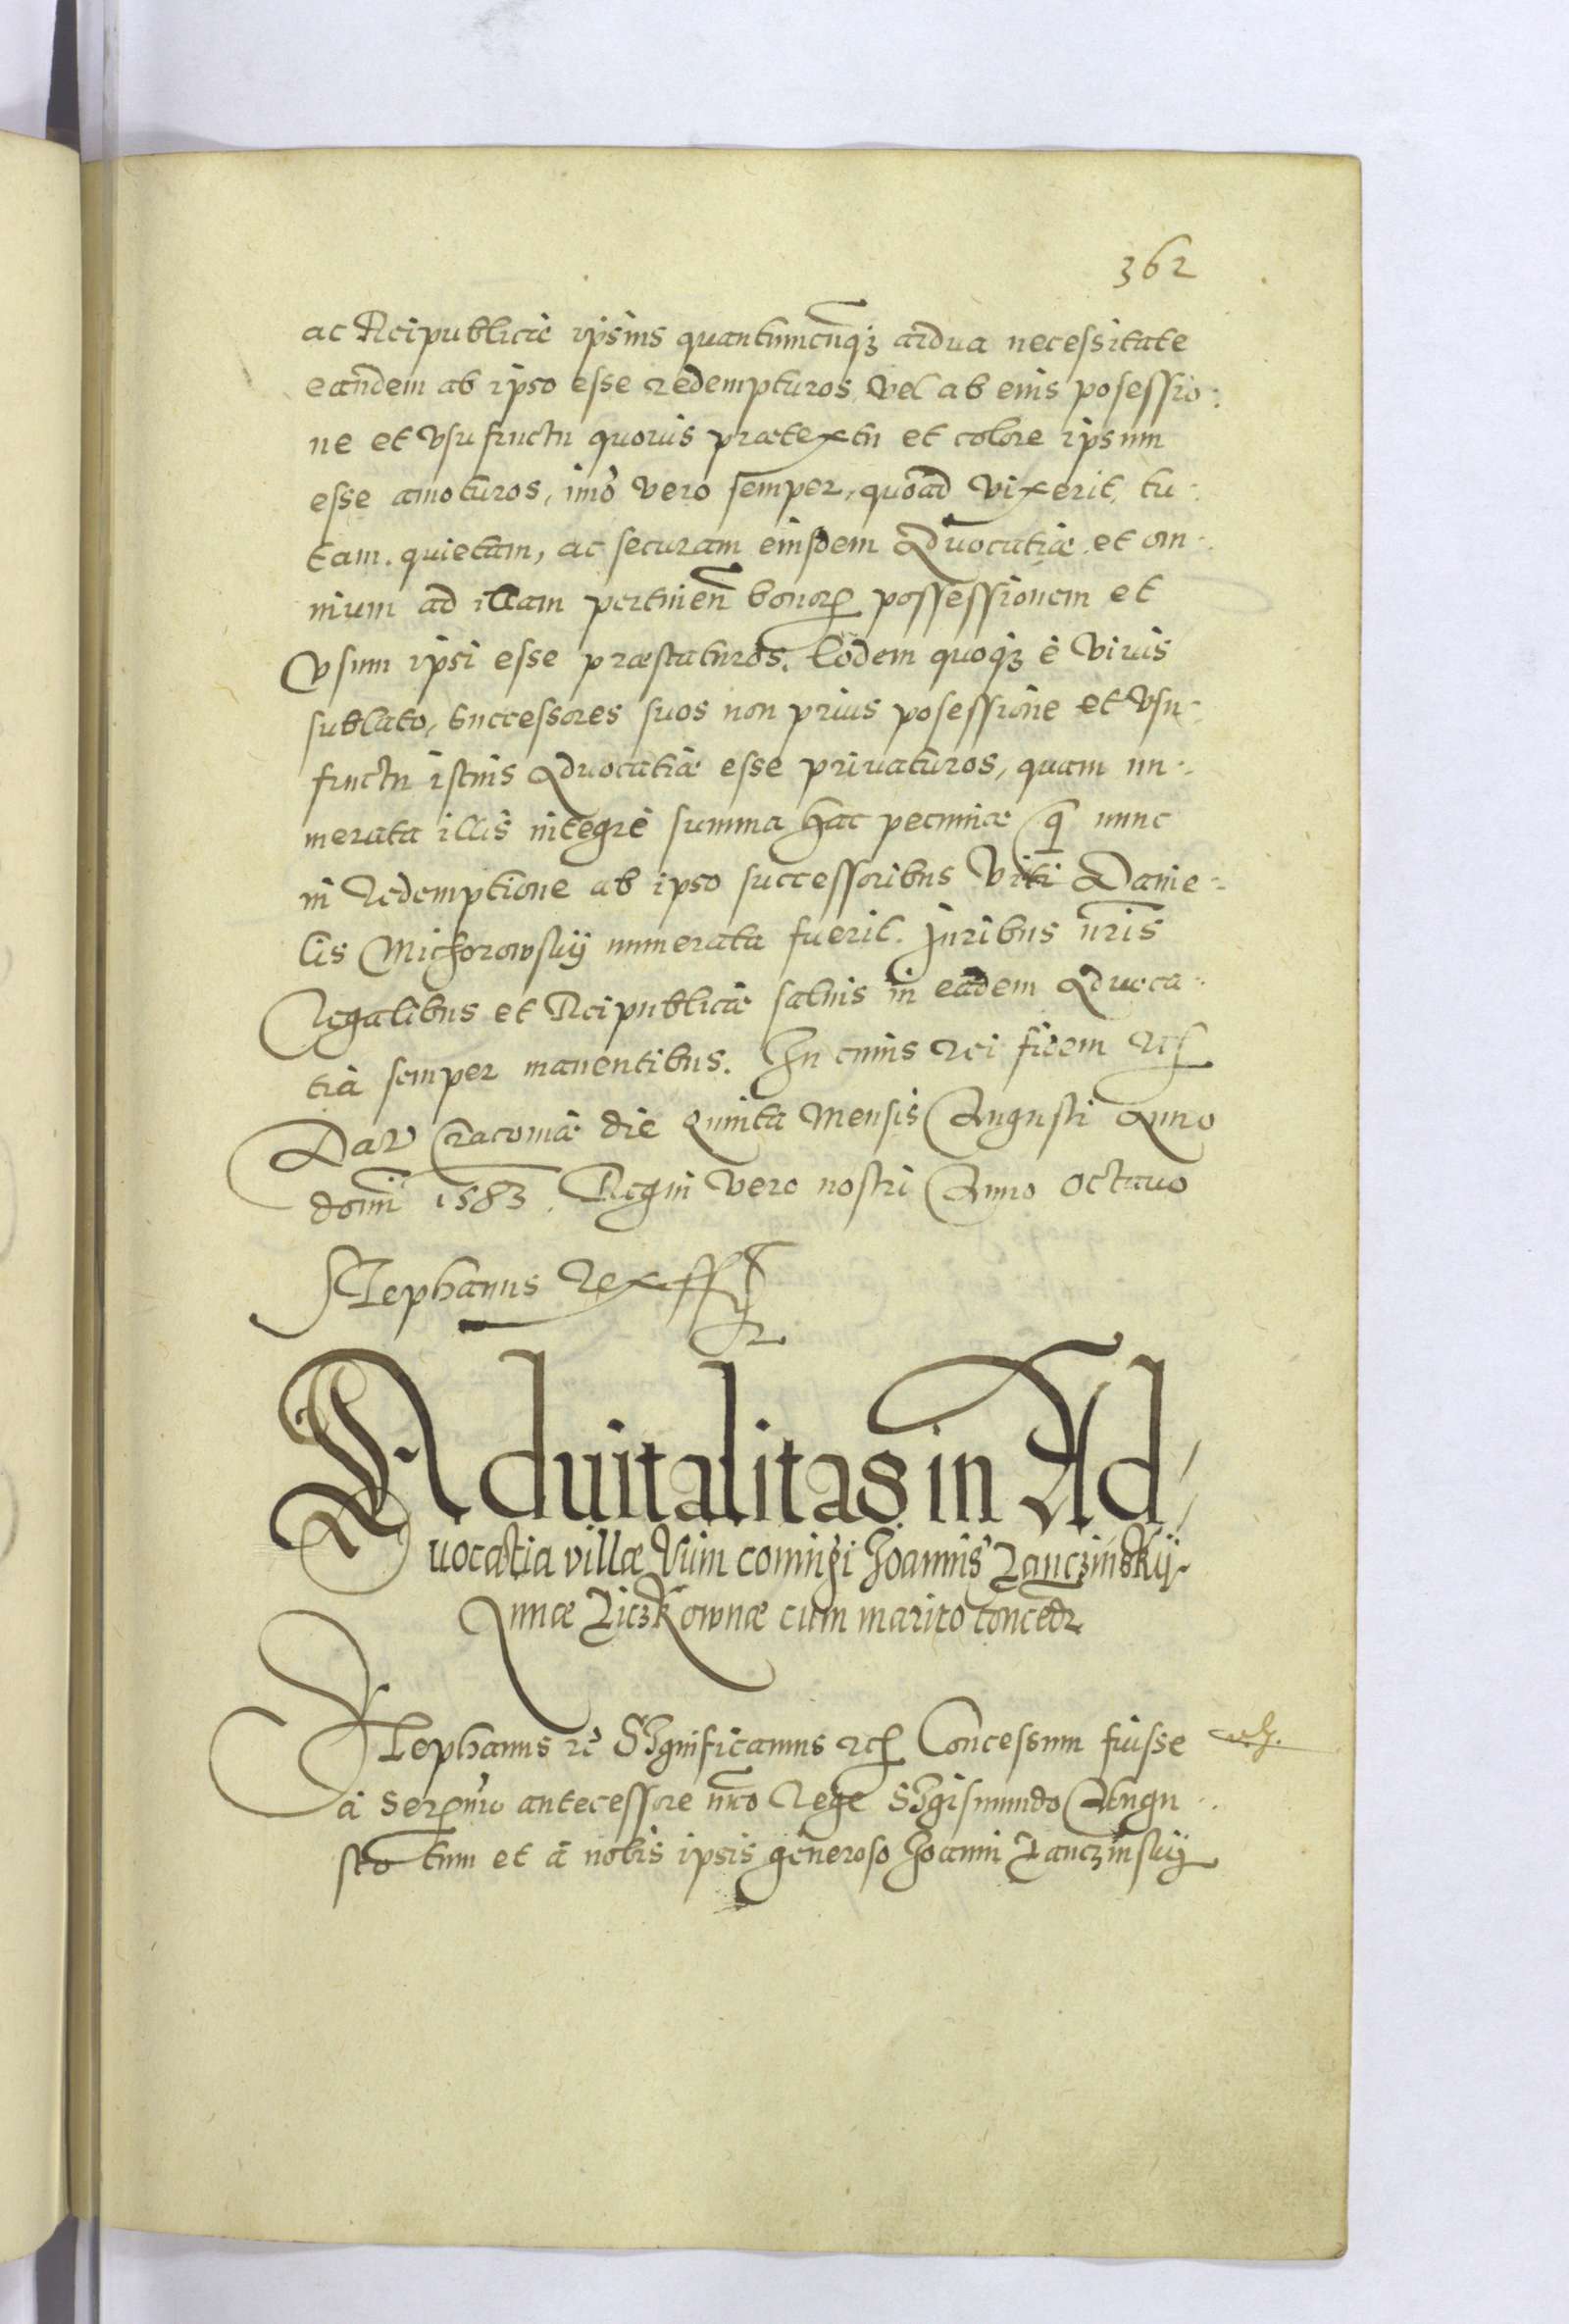 362
ac Reipublicæ ipsius quantumcunq3 ardua necessitate
eandem ab ipso esse redempturos, vel ab eius posessio:
ne et Vsufructu quouis prætextu et colore ipsum
esse amoturos, imò vero semper, quoad vixerit, tu:
tam. quietam, ac securam eiusdem Aduocatiæ et om:
nium ad illam pertinen̄ bonorꝝ possessionem et
Vsum ipsi esse præstaturos. Eodem quoq3 è viuis
sublato, successores suos non prius posessione et Vsu:
fructu istius Aduocatiæ esse priuaturos, quam nu:
merata illis integrè summa hac pecuniæ q̄ nunc
in Redemptione ab ipso successoribus Viti Danie:
lis Michorowskÿ numerata fuerit. Juribus nr̄is
Regalibus et Reipublicæ saluis in eadem Aduoca:
tia semper manentibus. In cuius rei fidem etc
Dat Cracouiæ die Quinta Mensis Augusti Anno
domī 1583. Regni vero nostri Anno octauo
Stephanus Rex ss
Aduitalitas in Ad,
uocatia villæ Vüm coniugi Joannis Lanczinskÿ
Annæ Ziczkownæ cum marito conceditr
Stephanus etc Significamus etc Concessum fuisse
à Serꝑmo antecessore nr̄o Rege Sigismundo Augu:
sto tum et à nobis ipsis generoso Joanni Lanczinskÿ